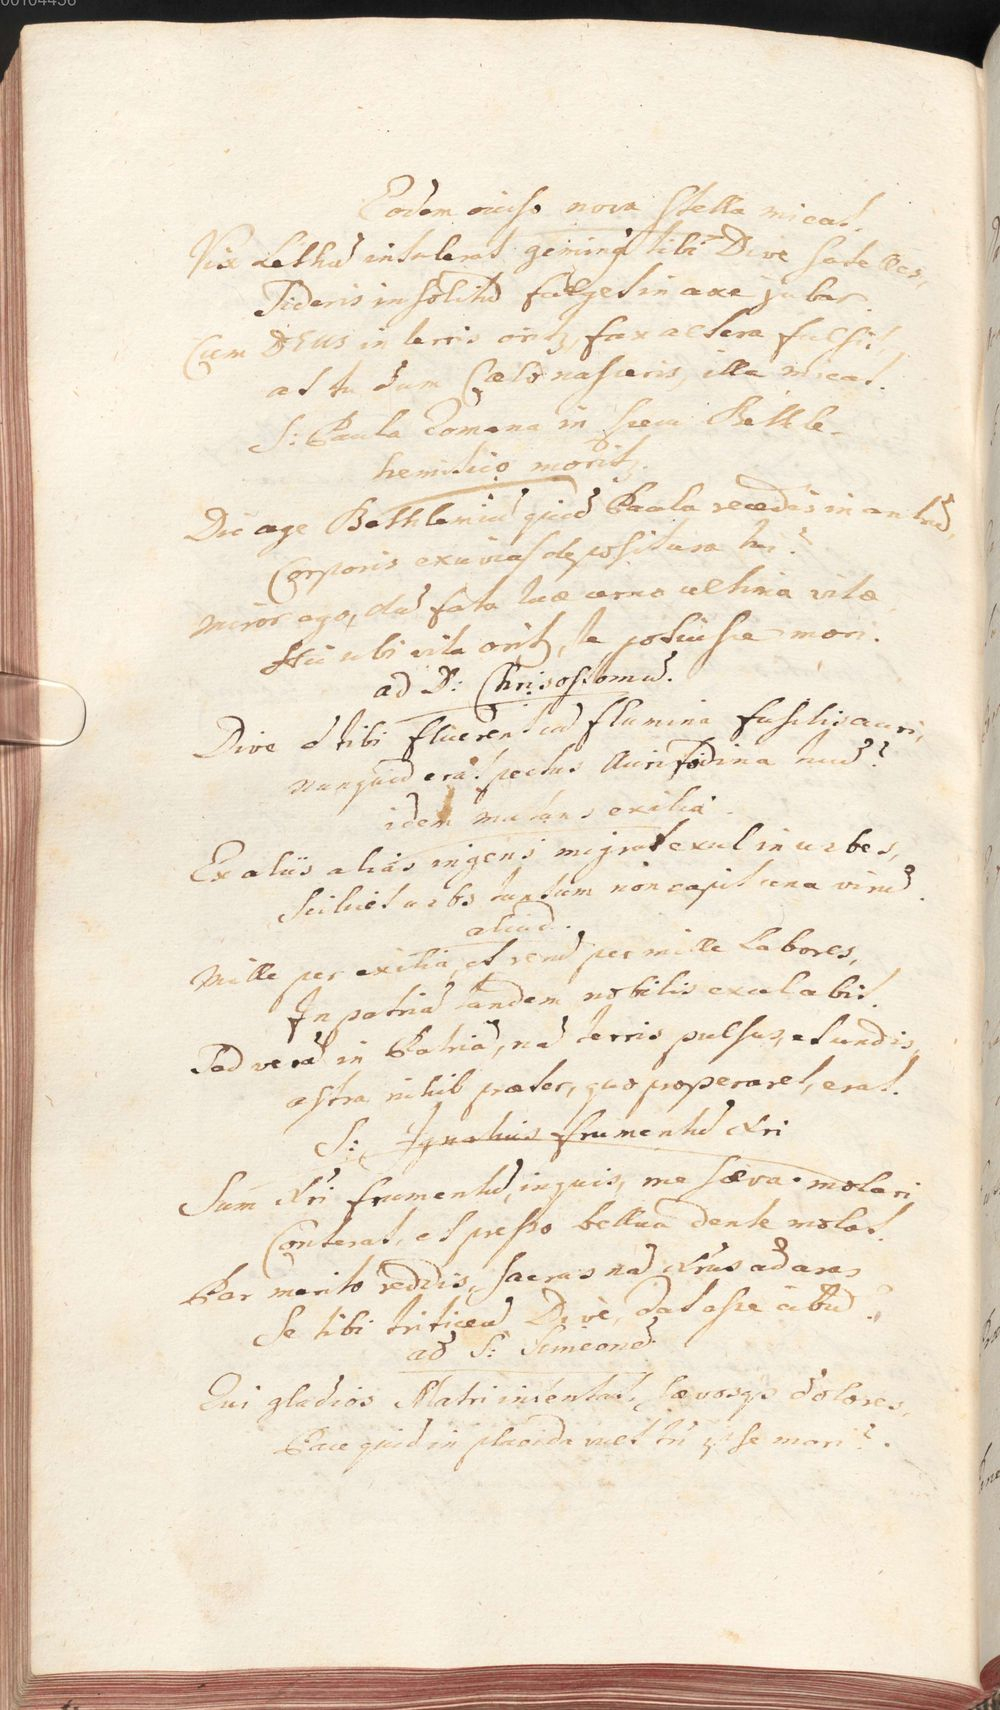 00104456
Eodem occiso nova stella micat.
Vix Lethũ intulerat geminũ tibi Dive satelles,
Sideris insolitũ fulget in axe jubar.
Cum DEUS in terris oritz, fax altera fulsit,
at tu dum Cælo nasceris, illa micat.
S: Paula Romana in specu Bethle-
hemitico moritz.
Dic age Bethlemiũ quid Paula recedis in antrũ,
Corporis exuvias depositura tui?
Miror ego, dũ fata tuæ cerno ultima vitæ,
Hic ubi vita oritz, te potuisse mori.
ad D: Chrisostomũ.
Dive è tibi fluerent cũ flumina fusilis auri,
nunquid erat pectus Aurifodina tuũ?
idem mutans exilia.
Ex aliis alias ingens migrat exul in urbes,
Scilicet urbs tantum non capit una virũ.
aliud.
Mille per exilia, et rerũ per mille Labores,
In patriã tandem nobilis exul abit.
Sed verã in Patriã, nã terris pulsus, et undis,
astra nihil præter, quo properaret, erat.
S: Ignatius frumentũ Xri
Sum Xri frumentũ, inquis, me sæva molari
Conterat, et presso bellua dente molat.
Par merito reddis, sacras nã Xrus ad aras
Se tibi triticeũ Dive, dat esse cibũ.
ad S: Simeonẽ.
Qui gladios Matri intentat, sævosqs dolores,
Pace quid in placida vult tñ ipse mori?.